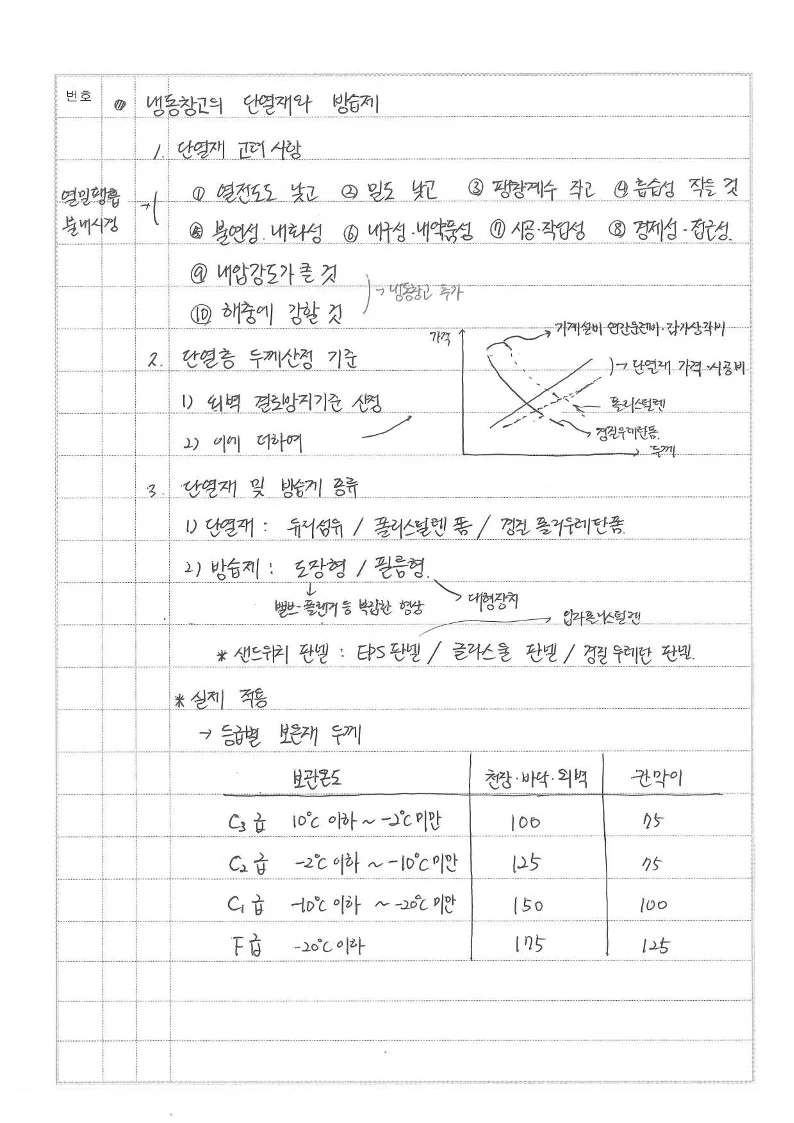 번호
냉동창고의 단열재와 방습제
1. 단열재 고려 사항
열밀팽흡
불내시경
→
① 열전도도 낮고 ② 밀도 낮고 ③ 팽창계수 작고 ④ 흡습성 작을 것
⑤ 불연성·내화성 ⑥ 내구성·내약품성 ⑦ 시공·작업성 ⑧ 경제성·접근성
⑨ 내압강도가 클 것
⑩ 해충에 강할 것
→ 냉동창고 추가
2. 단열층 두께산정 기준
1) 외벽 결로방지기준 선정
2) 이에 더하여
가격
기계설비 연간운전비·감가상각비
→ 단열재 가격·시공비
폴리스틸렌
경질우레탄폼
두께
3. 단열재 및 방습제 종류
1) 단열재 : 유리섬유 / 폴리스틸렌 폼 / 경질 폴리우레탄폼
2) 방습제 : 도장형 / 필름형
↓
밸브·플랜지 등 복잡한 형상
대형장치
* 샌드위치 판넬 : EPS 판넬 / 글라스울 판넬 / 경질 우레탄 판넬
* 실제 적용
→ 등급별 보온재 두께
보관온도 천장·바닥·외벽 칸막이
C3 급 10℃ 이하 ~ -2℃ 미만 100 75
C2 급 -2℃ 이하 ~ -10℃ 미만 125 75
C1 급 -10℃ 이하 ~ -20℃ 미만 150 100
F 급 -20℃ 이하 175 125